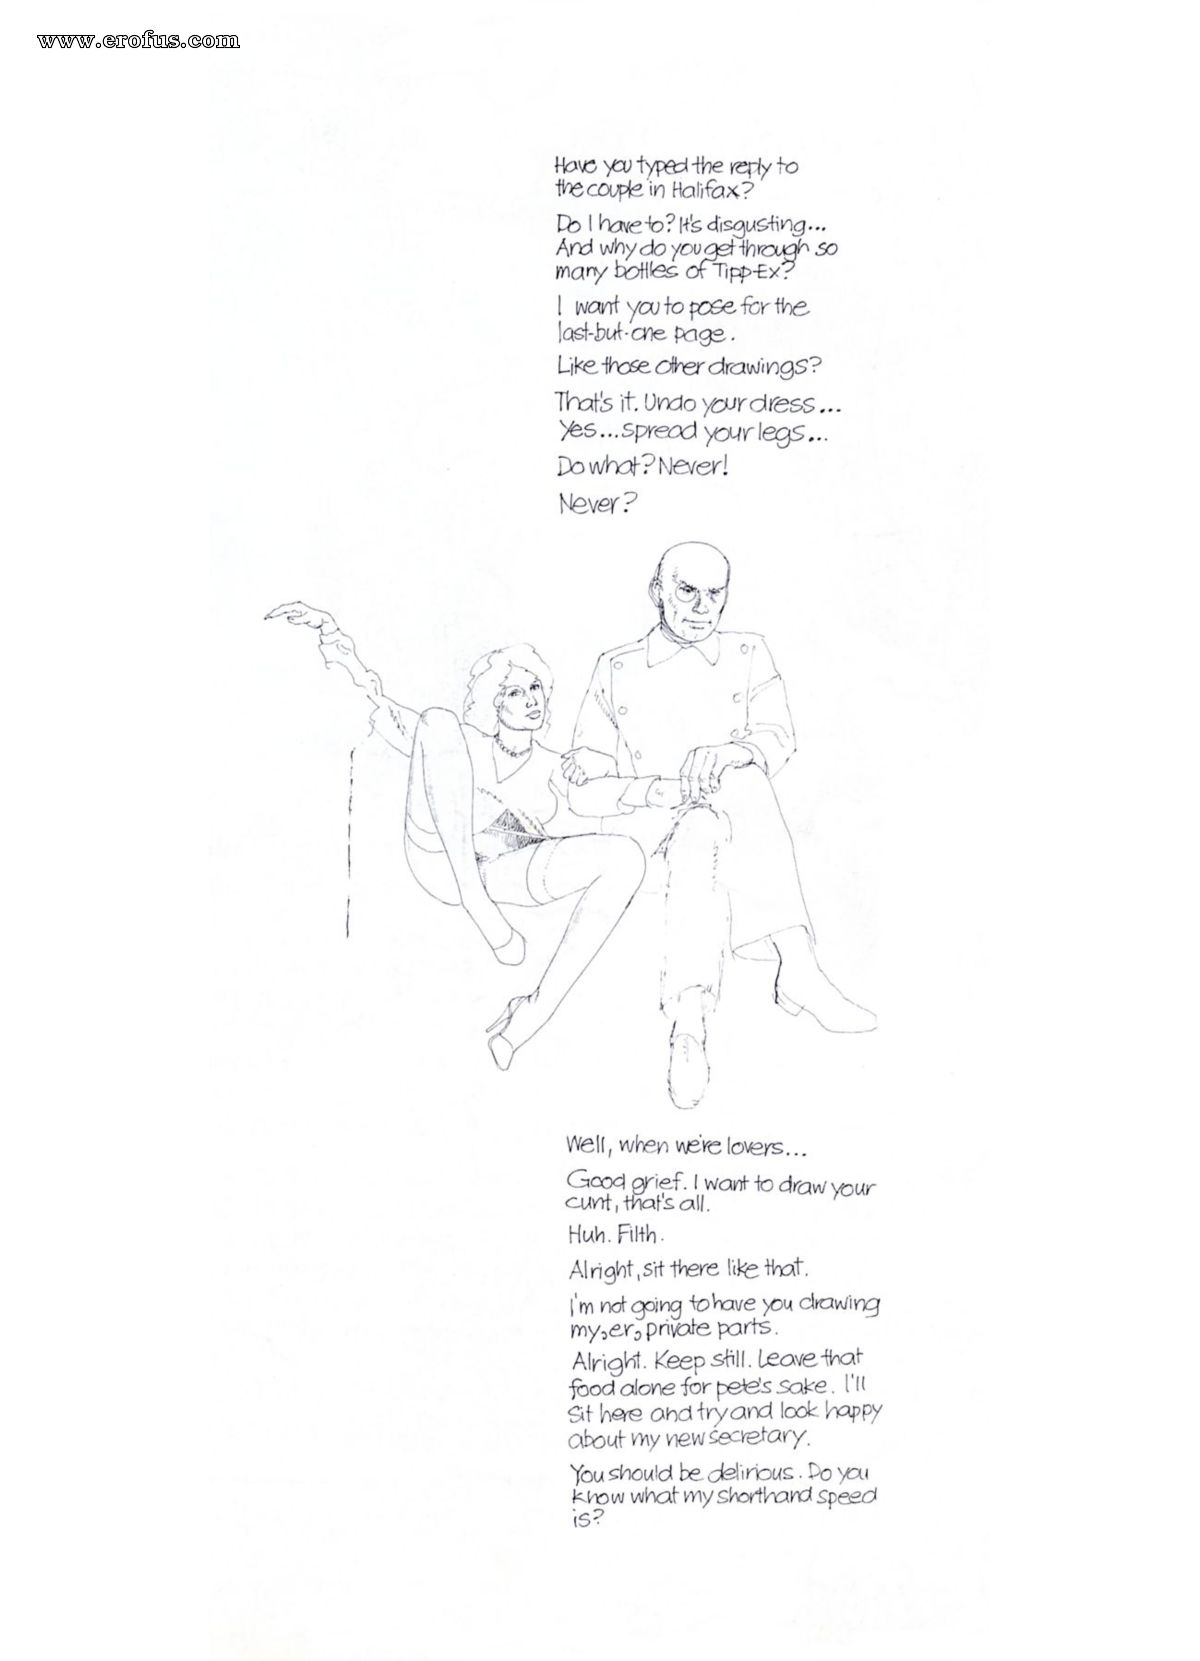 www.erofus.com
Have you typed the reply to
the couple in Halifax?
Do I have to? It's disgusting...
And why do you get through so
many bottles of Tipp-Ex?
I want you to pose for the
last-but-one page.
Like those other drawings?
That's it. Undo your dress...
Yes...spread your legs...
Do what? Never!
Never?
Well, when we're lovers...
Good grief. I want to draw your
cunt, that's all.
Huh. Filth.
Alright, sit there like that.
I'm not going to have you drawing
my, er, private parts.
Alright. Keep still. Leave that
food alone for pete's sake. I'll
Sit here and try and look happy
about my new secretary.
You should be delirious. Do you
know what my shorthand speed
is?